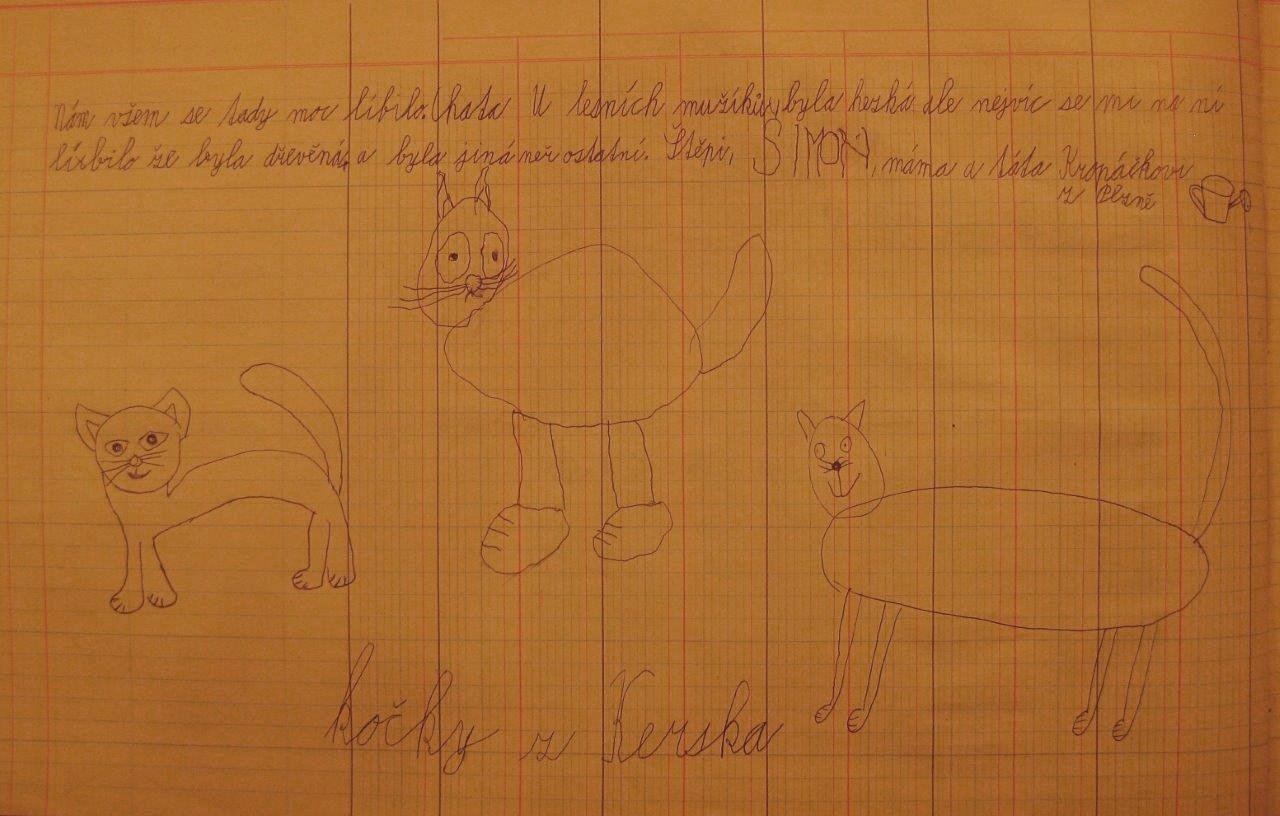 Nám všem se tady moc líbilo. Chata U lesních mužíků, byla hezká ale nejvíc se mi na ní
líbilo že byla dřevěná, a byla jiná než ostatní. Štěpi, SIMON, máma a táta Kropáčkovi
z Plzně
kočky z Kerska